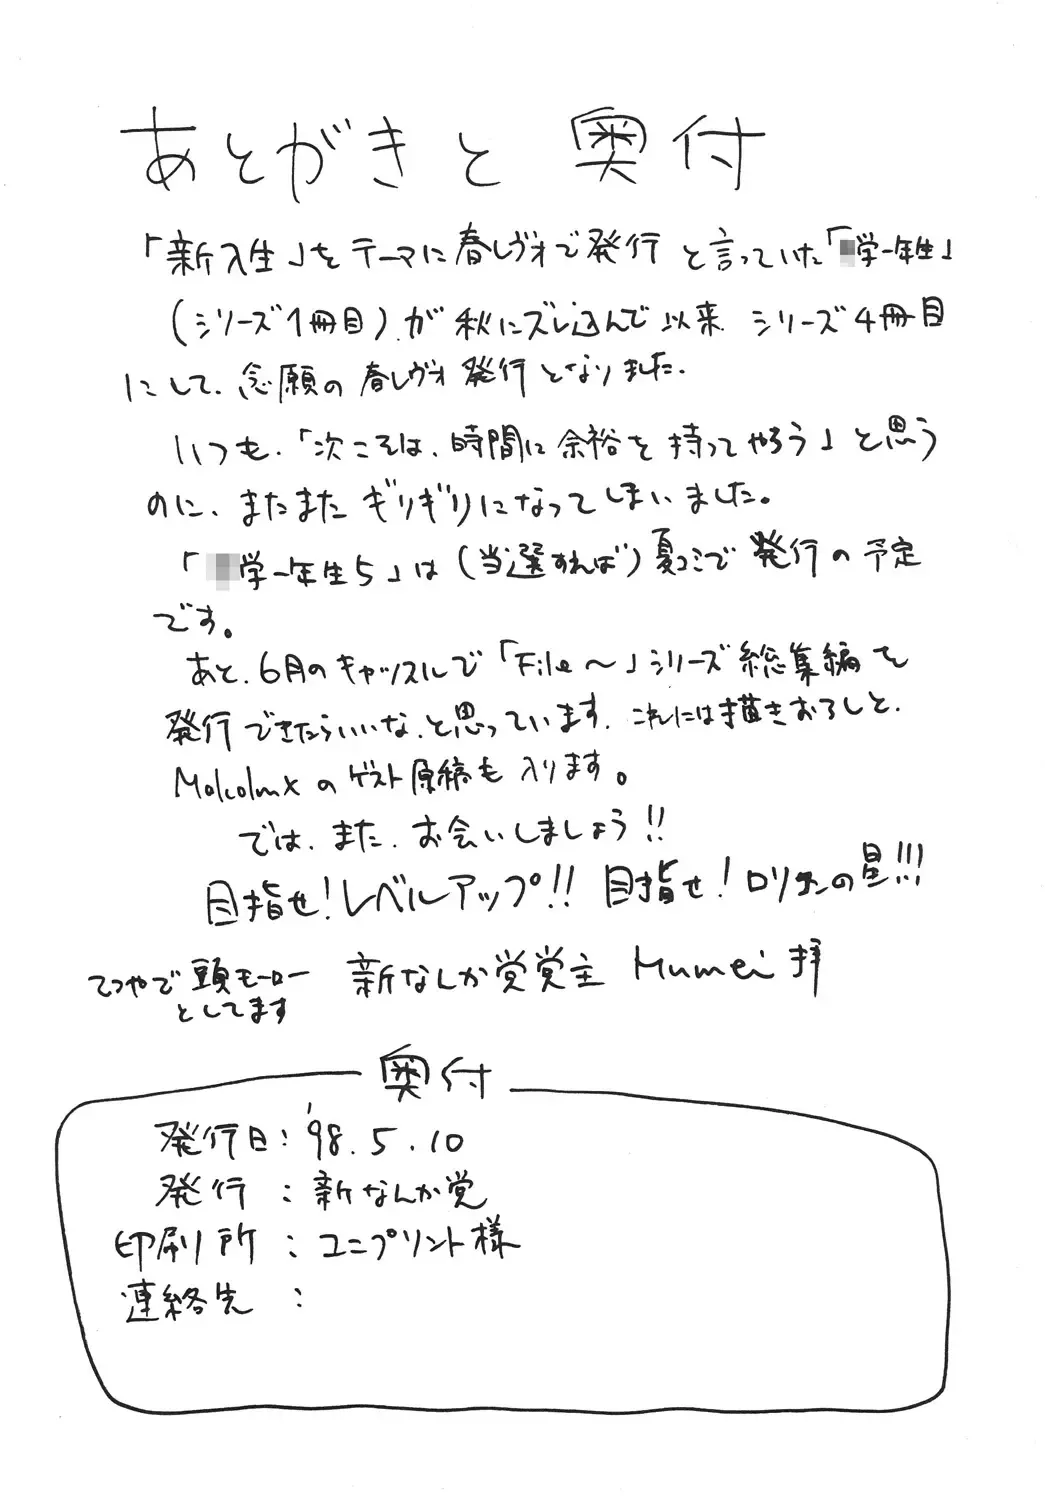 あとがきと 奥付
「新入生」をテーマに春レヴォで発行 と言っていた「学一年生」
(シリーズ1冊目)が 秋にズレ込んで以来 シリーズ4冊目
にして、念願の 春レヴォ発行となりました.
いつも.「次こそは、時間に余裕を持ってやろう」と思う
のに、またまた ギリギリになってしまいました。
「学一年生5」は(当選すれば)夏コミで 発行の予定
です。
あと、6月のキャッスルで「File〜」シリーズ総集編を
発行できたらいいな、と思っています. これには描きおろしと.
Molcolmxのゲスト原稿も入ります。
では、また、お会いしましょう!!
目指せ!レベルアップ!! 目指せ!ロリケンの星!!!
てつやで頭モーロー
としてます
新なんか党党主 Mumei 拝
奥付
発行日:'98.5.10
発行 :新なんか党
印刷所 :ユニプリント様
連絡先 :